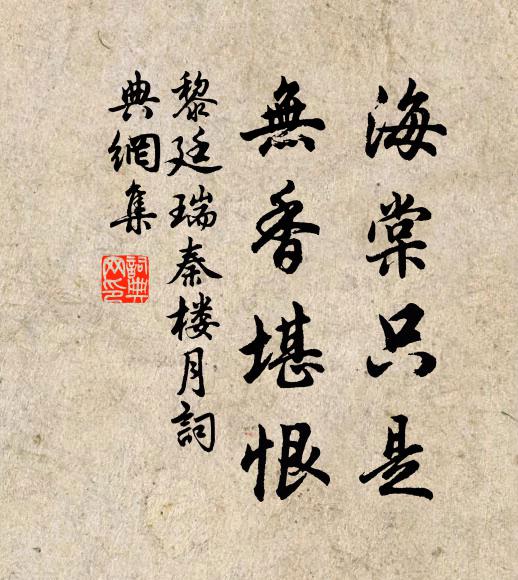 海棠只是
無香堪恨
黎廷瑞秦楼月詞
典網集
詞典網印